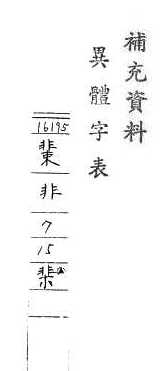 補充資料
異體字表
16195
非
7
15
棐